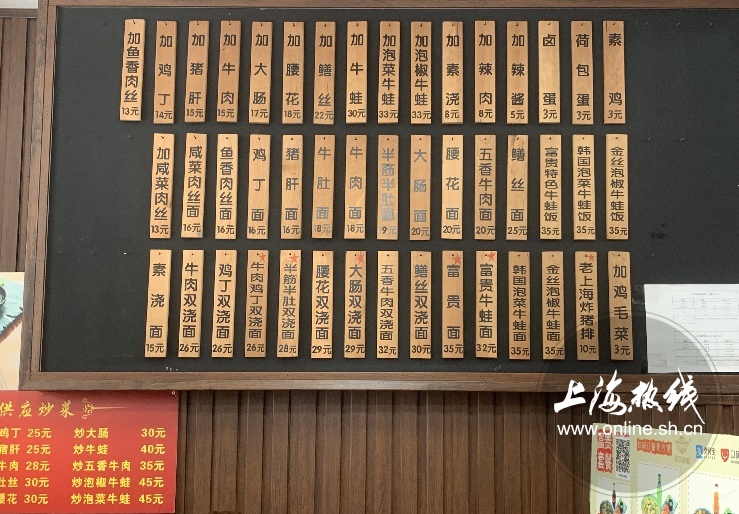 加鱼香肉丝 13元
加鸡丁 14元
加猪肝 15元
加牛肉 15元
加大肠 17元
加腰花 18元
加鳝丝 22元
加牛蛙 30元
加泡菜牛蛙 33元
加泡椒牛蛙 33元
加素浇 8元
加辣肉 8元
加辣酱 5元
卤蛋 3元
荷包蛋 3元
素鸡 3元
加咸菜肉丝 13元
咸菜肉丝面 16元
鱼香肉丝面 16元
鸡丁面 16元
猪肝面 16元
牛肚面 18元
牛肉面 18元
半筋半肚面 19元
大肠面 20元
腰花面 20元
五香牛肉面 20元
鳝丝面 25元
富贵特色牛蛙饭 35元
韩国泡菜牛蛙饭 35元
金丝泡椒牛蛙饭 35元
素浇面 15元
牛肉双浇面 26元
鸡丁双浇面 26元
牛肉鸡丁双浇面 26元
半筋半肚双浇面 28元
腰花双浇面 29元
大肠双浇面 29元
五香牛肉双浇面 32元
鳝丝双浇面 30元
富贵面 35元
富贵牛蛙面 32元
韩国泡菜牛蛙面 35元
金丝泡椒牛蛙面 35元
老上海炸猪排 10元
加鸡毛菜 3元
供应炒菜
鸡丁 25元 炒大肠 30元
猪肝 25元 炒牛蛙 40元
牛肉 28元 炒五香牛肉 35元
肚丝 30元 炒泡椒牛蛙 45元
腰花 30元 炒泡菜牛蛙 45元
上海热线
www.online.sh.cn
富贵
套餐
支付宝
口碑